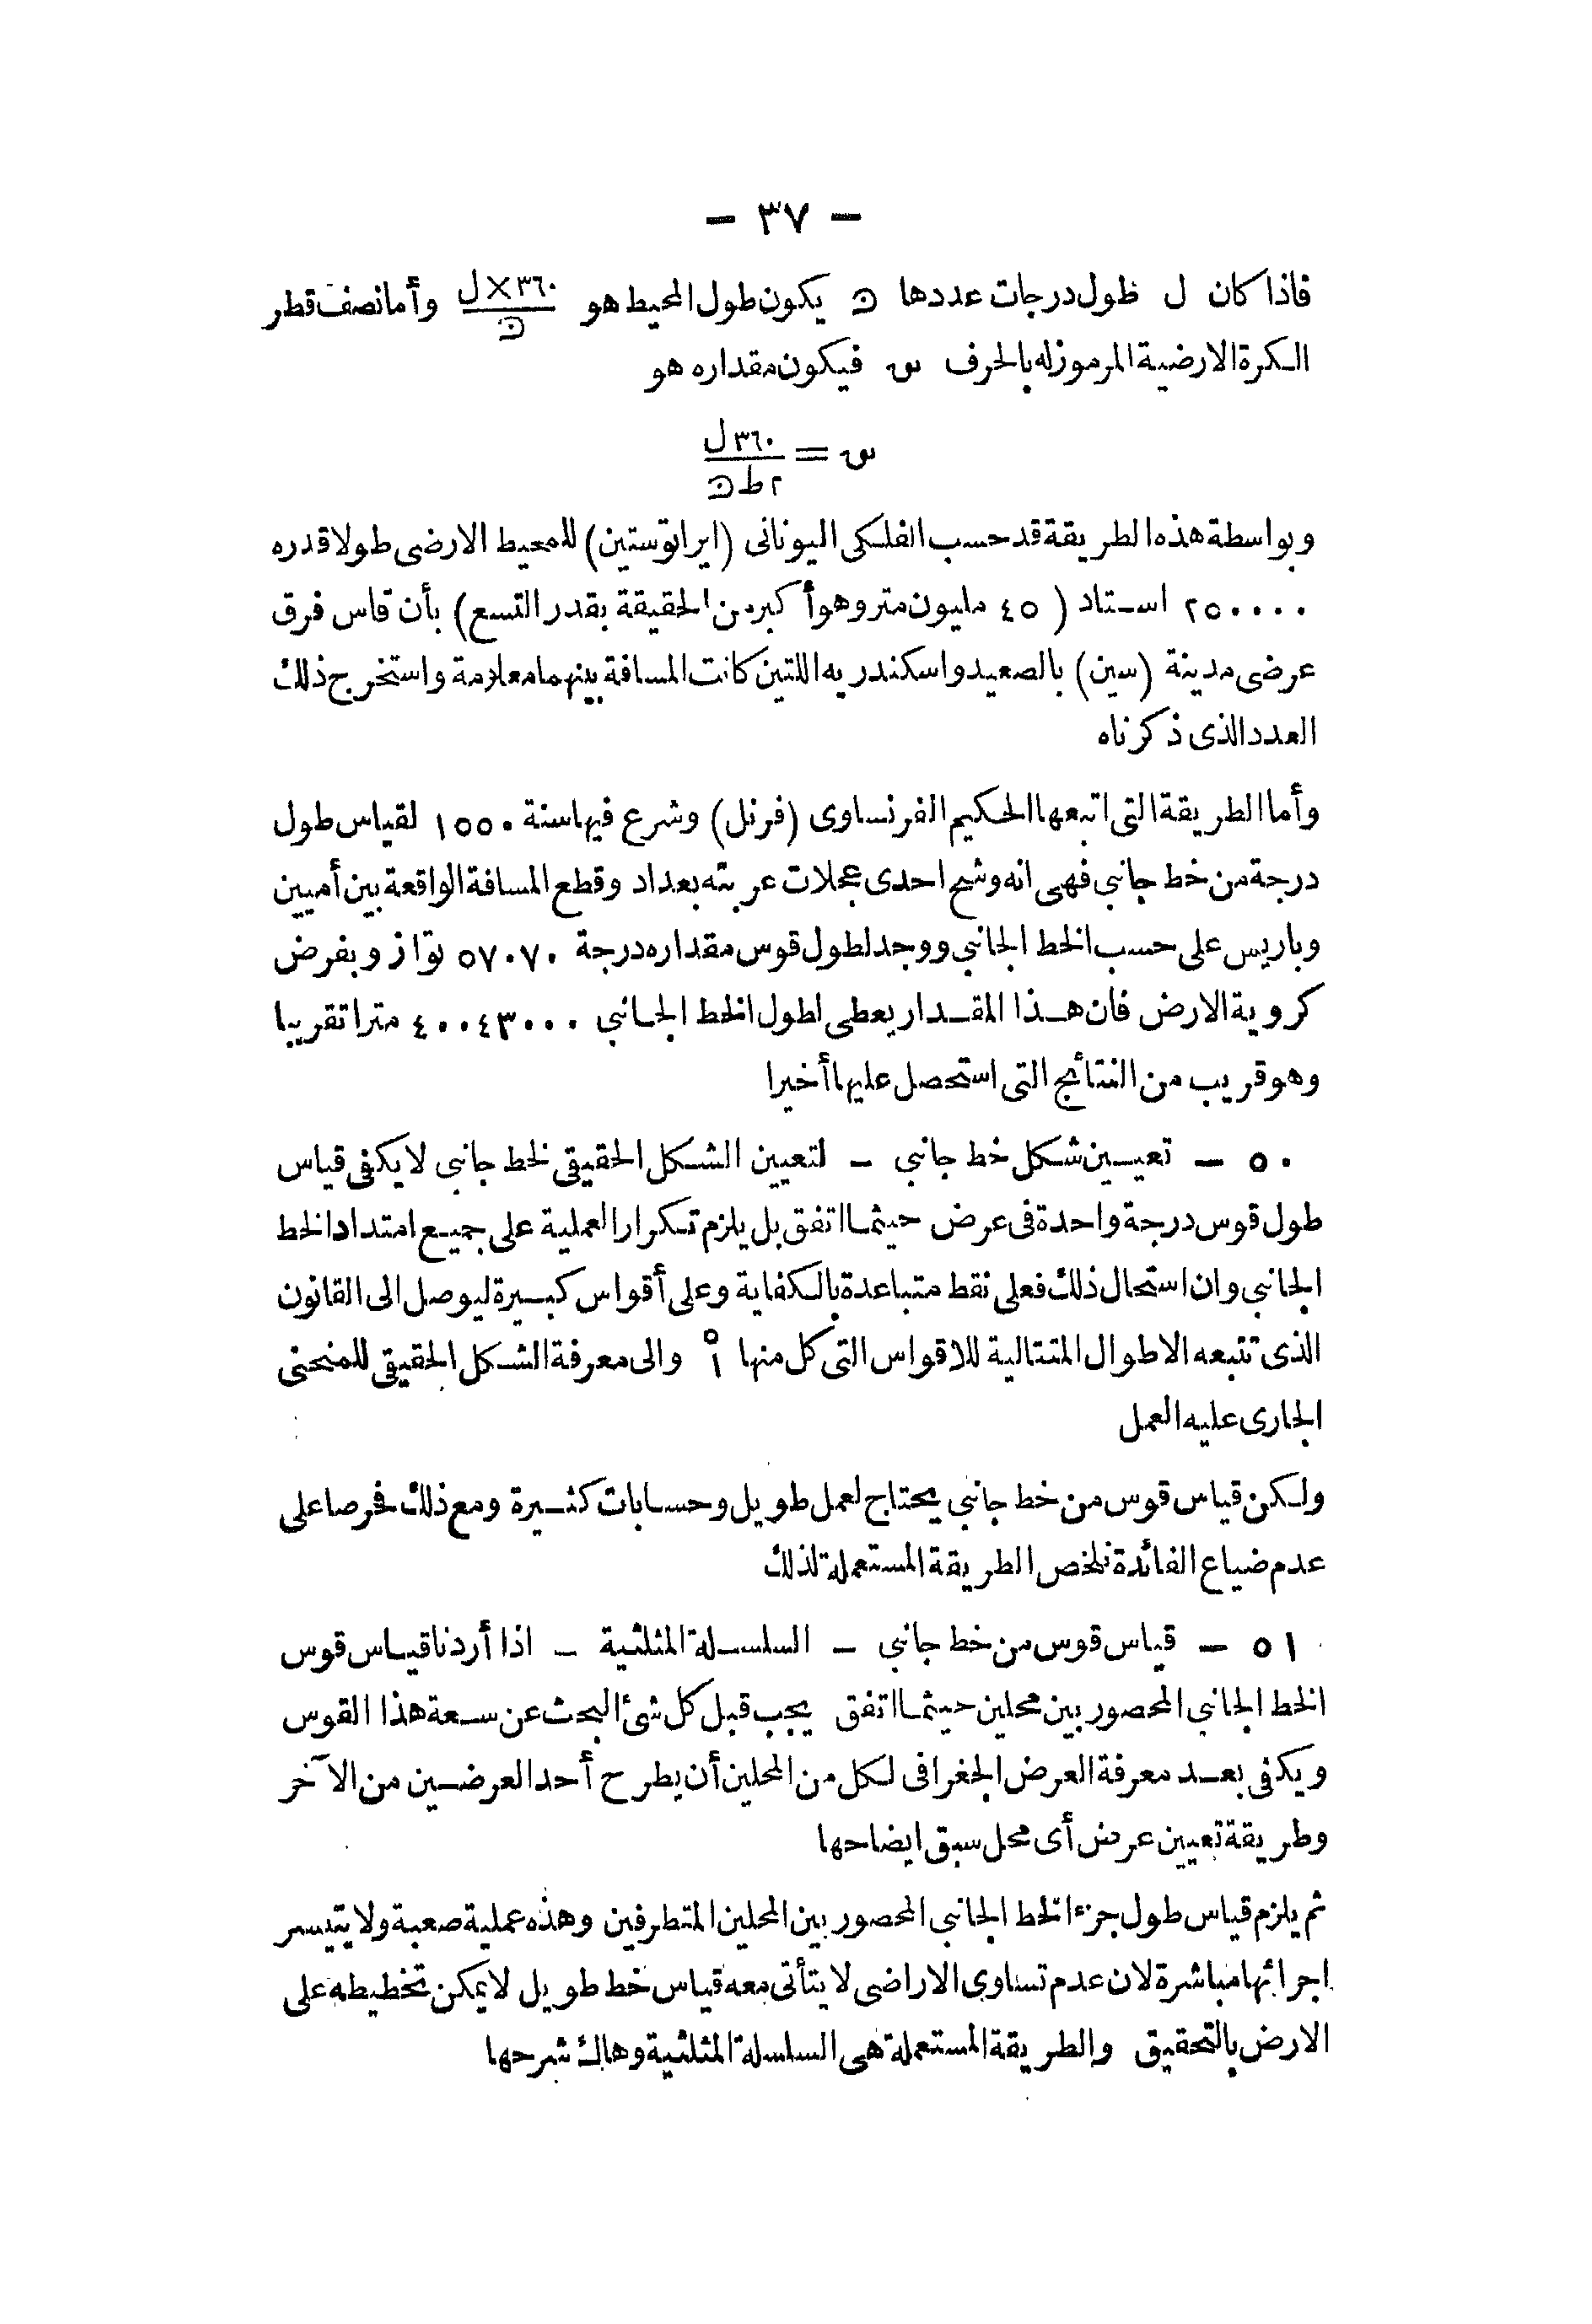 — ٣٧ —
فاذا كان ل طول درجات عددها ن يكون طول المحيط هو ٣٦٠×ل / ن وأما نصف قطر
الكرة الارضية المرموز له بالحرف س فيكون مقداره هو
س = ٣٦٠ل / ٢ط ن
وبواسطة هذه الطريقة قد حسب الفلكى اليونانى (ايراتوستين) للمحيط الارضى طولا قدره
٢٥٠٠٠٠ استاد (٤٥ مليون متر وهو أكبر من الحقيقة بقدر التسع) بأن قاس فرق
عرضى مدينة (سين) بالصعيد واسكندريه اللتين كانت المسافة بينهما معلومة واستخرج ذلك
العدد الذى ذكرناه
وأما الطريقة التى اتبعها الحكيم الفرنساوى (فرنل) وشرع فيها سنة ١٥٥٠ لقياس طول
درجة من خط جانبى فهى انه وشح احدى عجلات عربته بعداد وقطع المسافة الواقعة بين أميين
وباريس على حسب الخط الجانبى ووجد لطول قوس مقداره درجة ٥٧٠٧٠ تواز وبفرض
كروية الارض فان هذا المقدار يعطى لطول الخط الجانبى ٤٠٠٤٣٠٠٠ مترا تقريبا
وهو قريب من النتائج التى استحصل عليها أخيرا
٥٠ — تعيين شكل خط جانبى — لتعيين الشكل الحقيقى لخط جانبى لا يكفى قياس
طول قوس درجة واحدة فى عرض حيثما اتفق بل يلزم تكرار العملية على جميع امتداد الخط
الجانبى وان استحال ذلك فعلى نقط متباعدة بالكفاية وعلى أقواس كبيرة ليوصل الى القانون
الذى تتبعه الاطوال المتتالية للاقواس التى كل منها ١° والى معرفة الشكل الحقيقى للمنحنى
الجارى عليه العمل
ولكن قياس قوس من خط جانبى يحتاج لعمل طويل وحسابات كثيرة ومع ذلك فحرصا على
عدم ضياع الفائدة نلخص الطريقة المستعملة لذلك
٥١ — قياس قوس من خط جانبى — السلسلة المثلثية — اذا أردنا قياس قوس
الخط الجانبى المحصور بين محلين حيثما اتفق يجب قبل كل شئ البحث عن سعة هذا القوس
ويكفى بعد معرفة العرض الجغرافى لكل من المحلين أن يطرح أحد العرضين من الآخر
وطريقة تعيين عرض أى محل سبق ايضاحها
ثم يلزم قياس طول جزء الخط الجانبى المحصور بين المحلين المتطرفين وهذه عملية صعبة ولا يتيسر
اجرائها مباشرة لان عدم تساوى الاراضى لا يتأتى معه قياس خط طويل لا يمكن تخطيطه على
الارض بالتحقيق والطريقة المستعملة هى السلسلة المثلثية وهاك شرحها